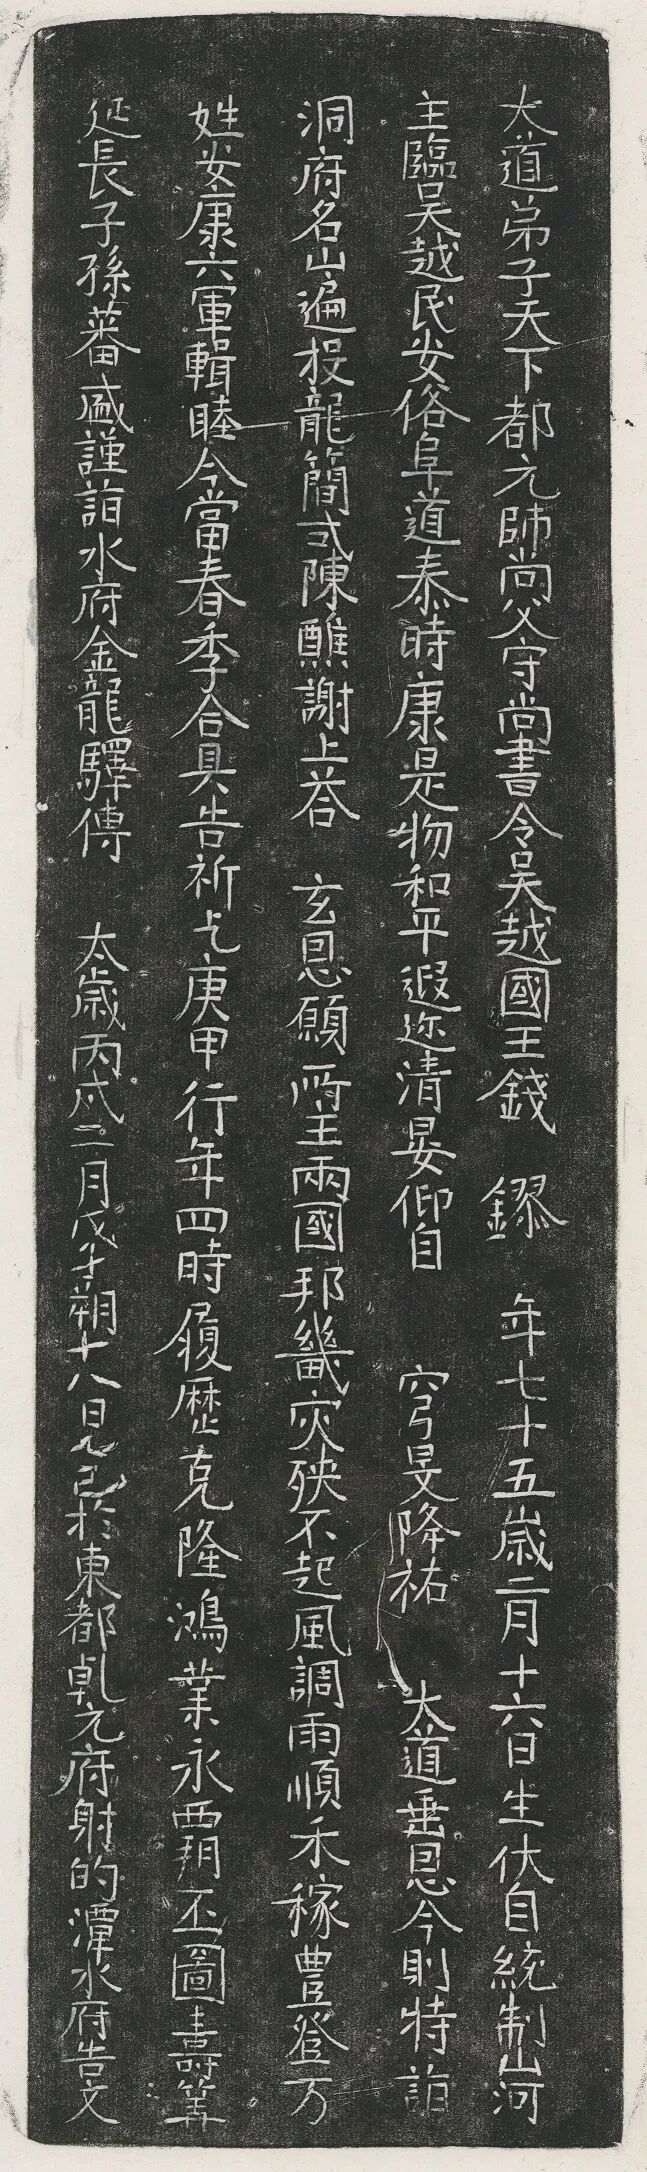 大道弟子天下都元帥尚父守尚書令吳越國王錢 鏐 年七十五歲二月十六日生伏自統制山河
主臨吳越民安俗阜道泰時康是物和平遐迩清晏仰自 穹旻降祐 大道垂恩今則特詣
洞府名山遍投龍簡式陳醮謝上荅 玄恩願所主兩國邦畿灾殃不起風調雨順禾稼豊登万
姓安康六軍輯睦今當春季合具告祈乞庚甲行年四時履歷克隆鴻業永覇丕圖壽筭
延長子孫蕃盛謹詣水府金龍驛傳 太歲丙戌二月戊子朔十八日乙巳於東都乹元府射的潭水府告文